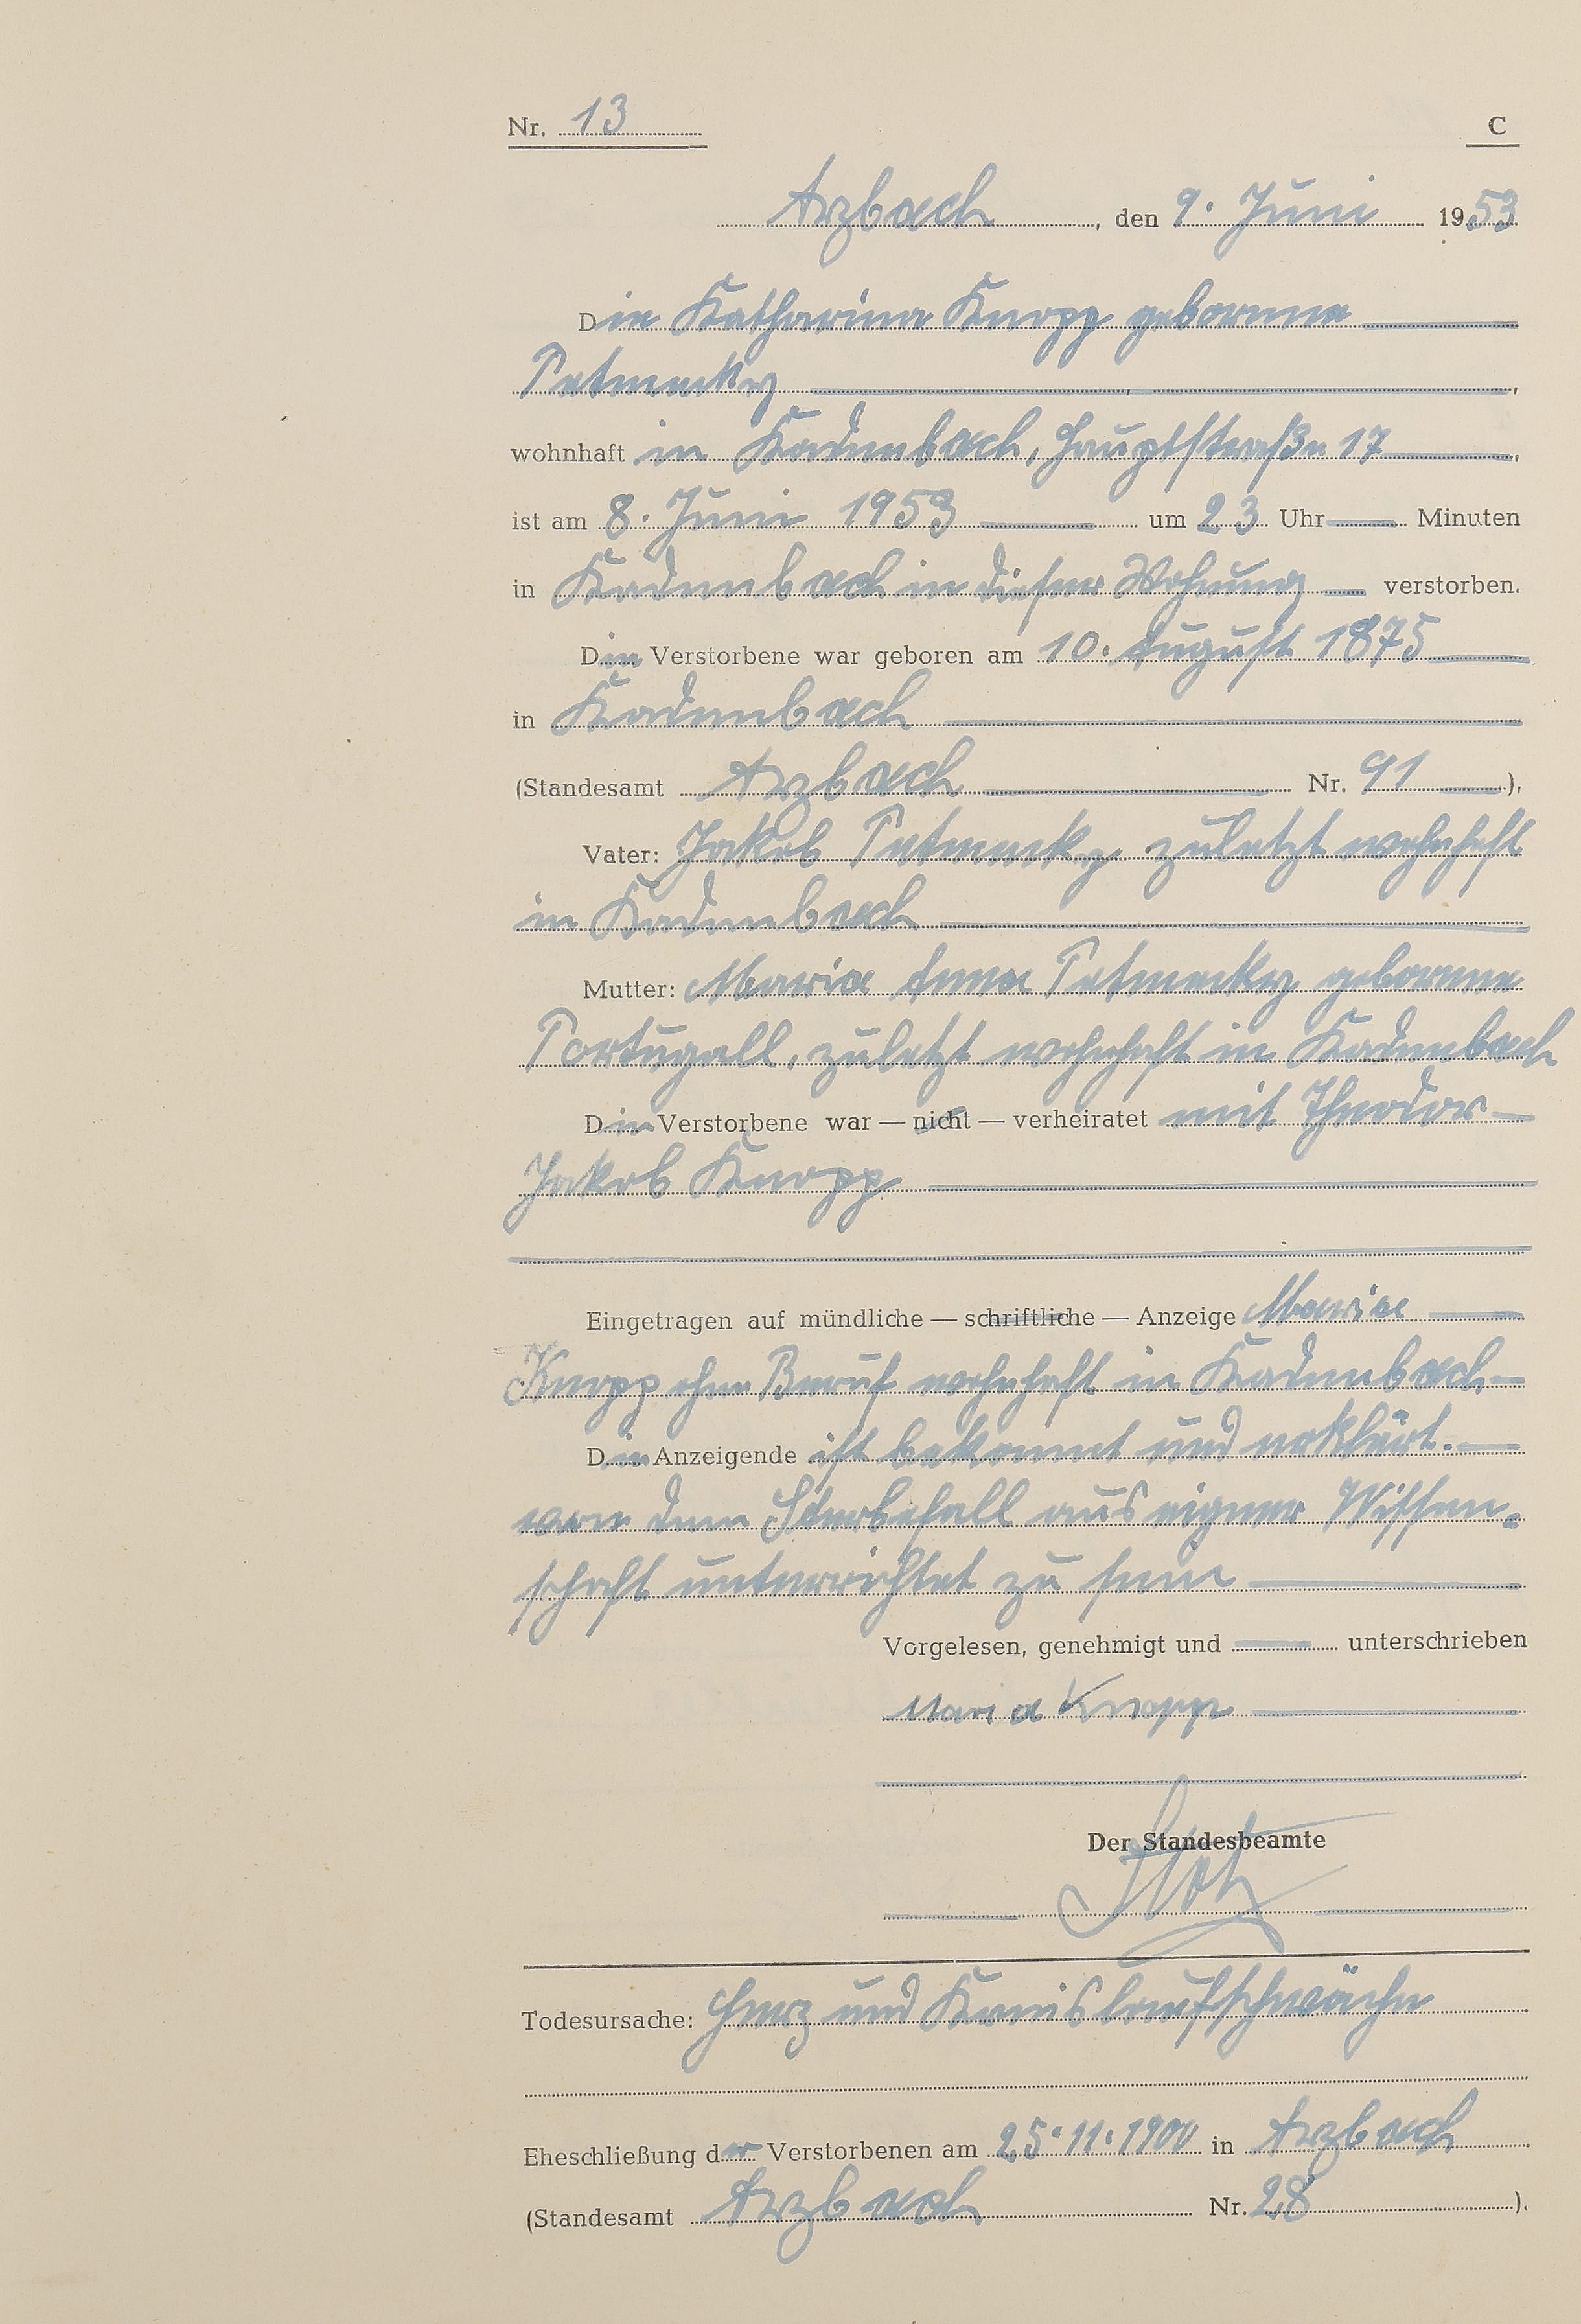 Nr. 13 C
Arzbach, den 9. Juni 1953
Die Katharina Knopp geborene
Petmecky,
wohnhaft in Kadenbach, Hauptstraße 17,
ist am 8. Juni 1953 um 23 Uhr — Minuten
in Kadenbach in dieser Wohnung — verstorben.
Die Verstorbene war geboren am 10. August 1875
in Kadenbach
(Standesamt Arzbach Nr. 91),
Vater: Jakob Petmecky zuletzt wohnhaft
in Kadenbach
Mutter: Maria Anna Petmecky geborene
Portugall, zuletzt wohnhaft in Kadenbach
Die Verstorbene war — nicht — verheiratet mit Theodor
Jakob Knopp
Eingetragen auf mündliche — schriftliche — Anzeige Maria
Knopp ohne Beruf wohnhaft in Kadenbach
Die Anzeigende ist bekannt und erklärt.
von dem Sterbefall aus eigner Wissen-
schaft unterrichtet zu sein
Vorgelesen, genehmigt und — unterschrieben
Maria Knopp
Der Standesbeamte
Todesursache: Herz und Kreislaufschwäche
Eheschließung der Verstorbenen am 25.11.1900 in Arzbach
(Standesamt Arzbach Nr. 28).